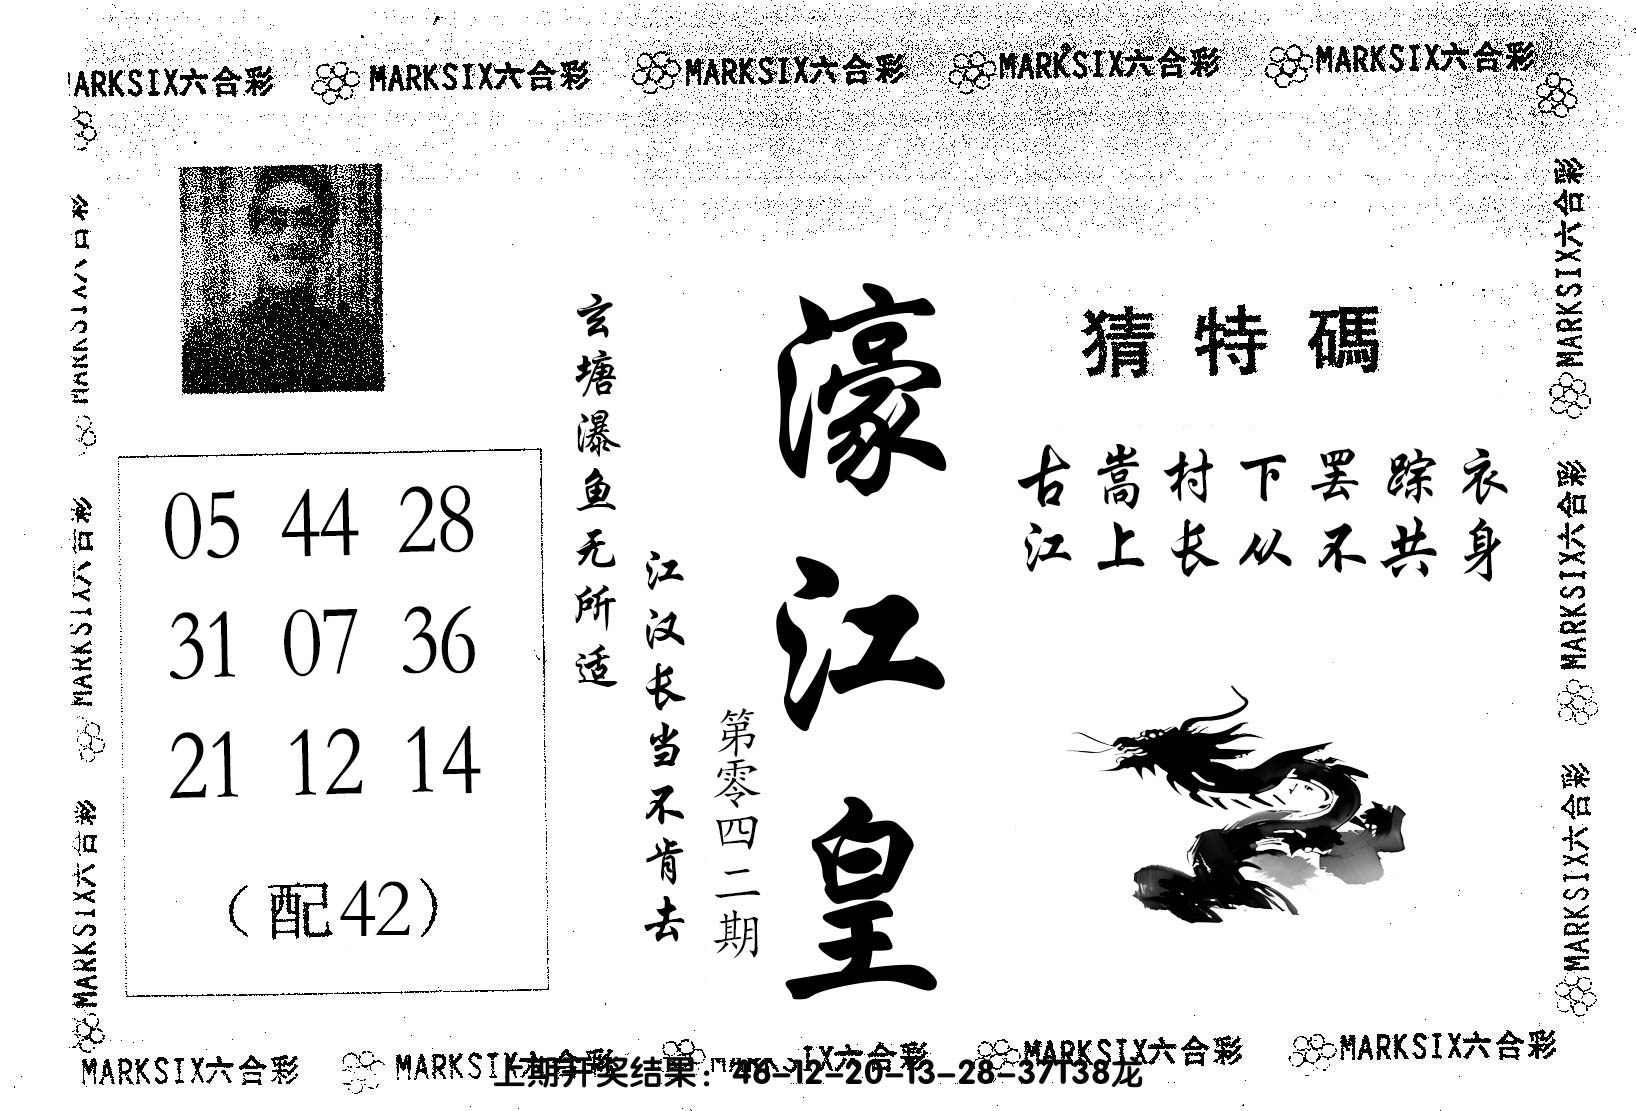 MARKSIX六合彩 MARKSIX六合彩 MARKSIX六合彩 MARKSIX六合彩 MARKSIX六合彩
猜特碼
古嵩村下罢踪衣
江上长从不共身
濠江皇
第零四二期
玄塘瀑鱼无所适
江汉长当不肯去
05 44 28
31 07 36
21 12 14
（配42）
MARKSIX六合彩
MARKSIX六合彩
MARKSIX六合彩
MARKSIX六合彩
MARKSIX六合彩
MARKSIX六合彩
MARKSIX六合彩 MARKSIX六合彩 MARKSIX六合彩 MARKSIX六合彩 MARKSIX六合彩
上期开奖结果：46-12-20-13-28-37T38龙